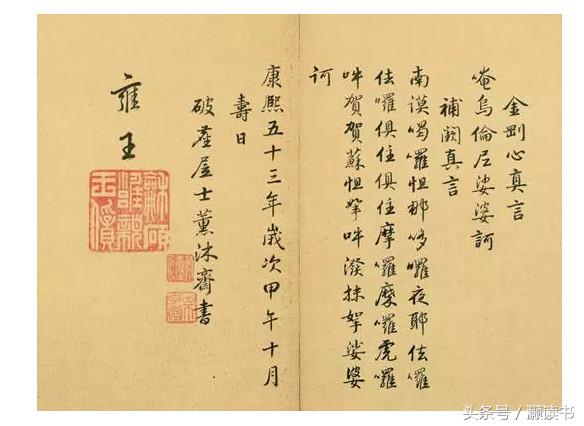 金剛心真言
唵烏倫尼娑婆訶
補闕真言
南謨喝囉怛那哆囉夜耶佉囉
佉囉俱住俱住摩囉摩囉虎囉
吽賀賀蘇怛拏吽潑抹拏娑婆
訶
康熙五十三年歲次甲午十月
壽日
破塵居士薰沐齋書
雍王
头条号 / 灏读书